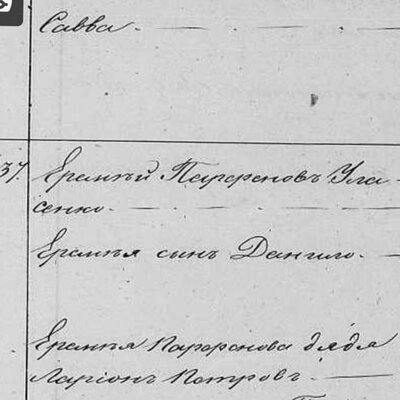 Савва.
37. Еремѣй Парфеновъ Ула-
сенко.
Еремѣя сынъ Данило.
Еремѣя Парфенова дядя
Ларіонъ Петровъ.